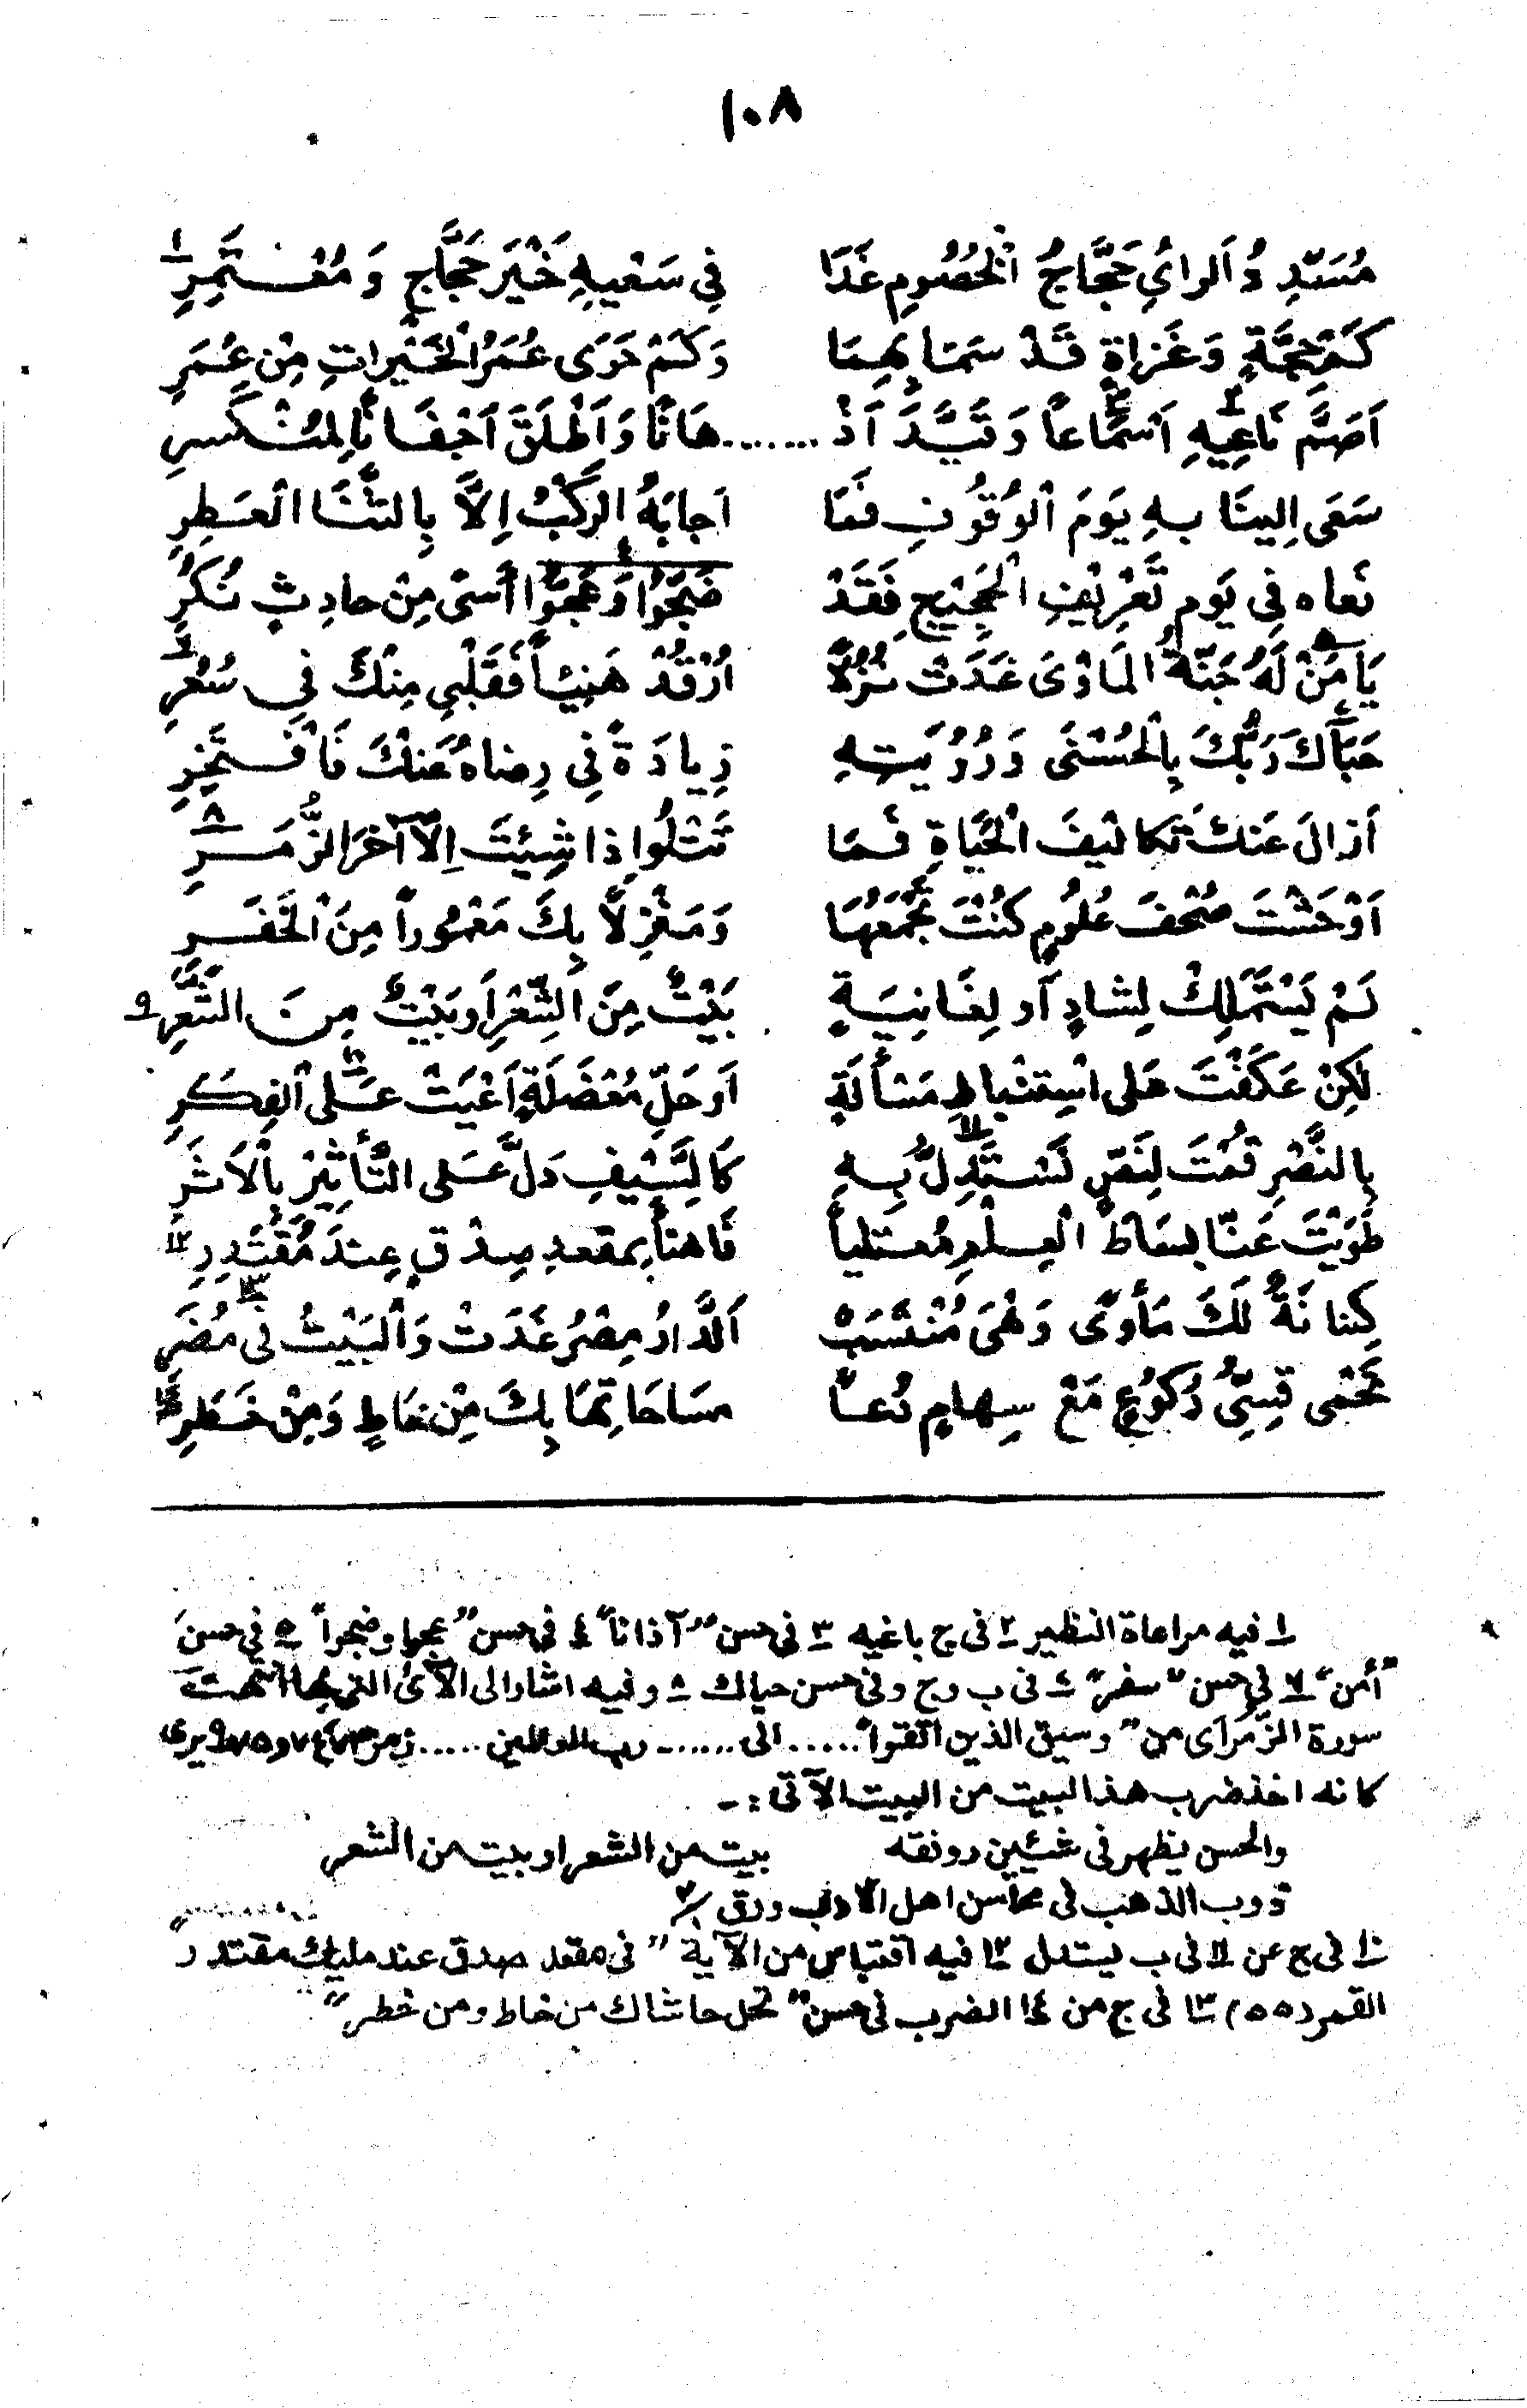 ١٠٨
مُسَدِّدُ الرايِ حَجَّاجُ الْخُصُومِ غَدَا فِي سَعْيِهِ خَيْرَ حَجَّاجٍ وَ مُعْتَمِرِ ١
كَمْ حِجَّةٍ وَ غَزاةٍ قَدْ سَمَا بِهِمَا وَ كَمْ حَوَى عُمَرُ الْخَيْراتِ مِنْ عُمَرِ
اَصَمَّ نَاعِيهِ ٢ اَسْمَاعاً ٣ وَ قَيَّدَ اَذْ ....... هَانًا وَ اَطْلَقَ اَجْفَانًا لِمُنْكَسِرِ
سَعَى اِلينَا بهِ يَومَ الْوُقُوفِ فَمَا اَجابَهُ الرَّكْبُ اِلاَّ بِالثَّنَا الْعَطِرِ
نَعاه فِي يَومِ تَعْرِيْفِ الْحَجِيْجِ فَقَدْ ضَجُّوْا وَعَجُّوْا ٤ اَسًى مِنْ حادِثٍ نُكُرِ
يَا مَنْ ٥ لَهُ جَنَّةُ المَاوَى غَدَتْ نُزُلاً اُرْقُدْ هَنِيئاً فَقَلْبِي مِنْكَ فِي سُعُرِ ٦
حَبَاكَ رَبُّكَ بِالْحُسْنَى وَ رُؤيَتِهِ زِيادَةً فِي رِضاهُ عَنْكَ فَافْتَخِرِ
اَزالَ عَنكَ تَكاليفَ الْحَيَاةِ فَمَا تَتْلُو اِذا شِئتَ اِلاَّ آخَرَ الزُّمَرِ ٨
اَوْحَشْتَ صُحْفَ عُلُومٍ كُنْتَ تَجْمَعُهَا وَ مَنْزِلاً بِكَ مَعْمُوراً مِنَ الْخَفَرِ
لَمْ يَسْتَمِلْكَ لِشادٍ اَو لِغَانِيَةٍ بَيْتٌ مِنَ الشِّعْرِ اَو بَيْتٌ مِنَ الشَّعَرِ ٩
لكِنْ عَكَفْتَ عَلى اسْتِنْباطِ مَسْألَةٍ اَو حَلِّ مُعْضَلَةٍ اَعْيَتْ عَلَى ١٠ الْفِكَرِ
بِالنَّصْرِ قُمْتَ لِنَصٍّ تَسْتَدِلُّ ١١ بِهِ كَالسَّيْفِ دَلَّ عَلى التَّأثِيْرِ بِالْاَثَرِ
طَوَيْتَ عَنّا بِسَاطَ الْعِلْمِ مُعتلياً فَاهنأ بِمقعدِ صِدْقٍ عِندَ مُقْتَدِرِ ١٢
كِنانَةٌ لَكَ مَأوًى وَهْيَ مُنْتَسَبٌ اَلدَّارُ مِصْرُ غَدَتْ وَالْبَيْتُ فِي ١٣ مُضَرِ
تَحْمِى قِسِيُّ رُكُوْعٍ مَعْ سِهامِ دُعاً مسَاحَاتِهَا بِكَ مِنْ خَاطٍ وَمِنْ خَطَرِ ١٤
١ فيه مراعاة النظير ٢ فى ج باغيه ٣ فى حسن "آذانا" ٤ فى حسن "عجوا وضجوا" ٥ في حسن
"أمن" ٦ في حسن "سفر" ٧ فى ب وج وفى حسن حياك ٨ وفيه اشار الى الآى التي بها انتهت
سورة الزمر اى من "وسيق الذين اتقوا ..... الى ....... رب العالمين ..... يرى
كانه اخذ ضرب هذا البيت من البيت الآتى :-
والحسن يظهر فى شيئين رونقه بيت من الشعر او بيت من الشعر
ذوب الذهب فى محاسن اهل الادب ورق
١٠ فى ج عن ١١ فى ب يستدل ١٢ فيه اقتباس من الآية "فى مقعد صدق عند مليك مقتدر"
القمر (٥٥) ١٣ فى ج من ١٤ الضرب فى حسن "تحل حاشاك من خاط ومن خطر"